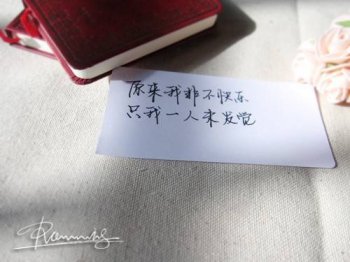 原来我非不快乐
只我一人未发觉